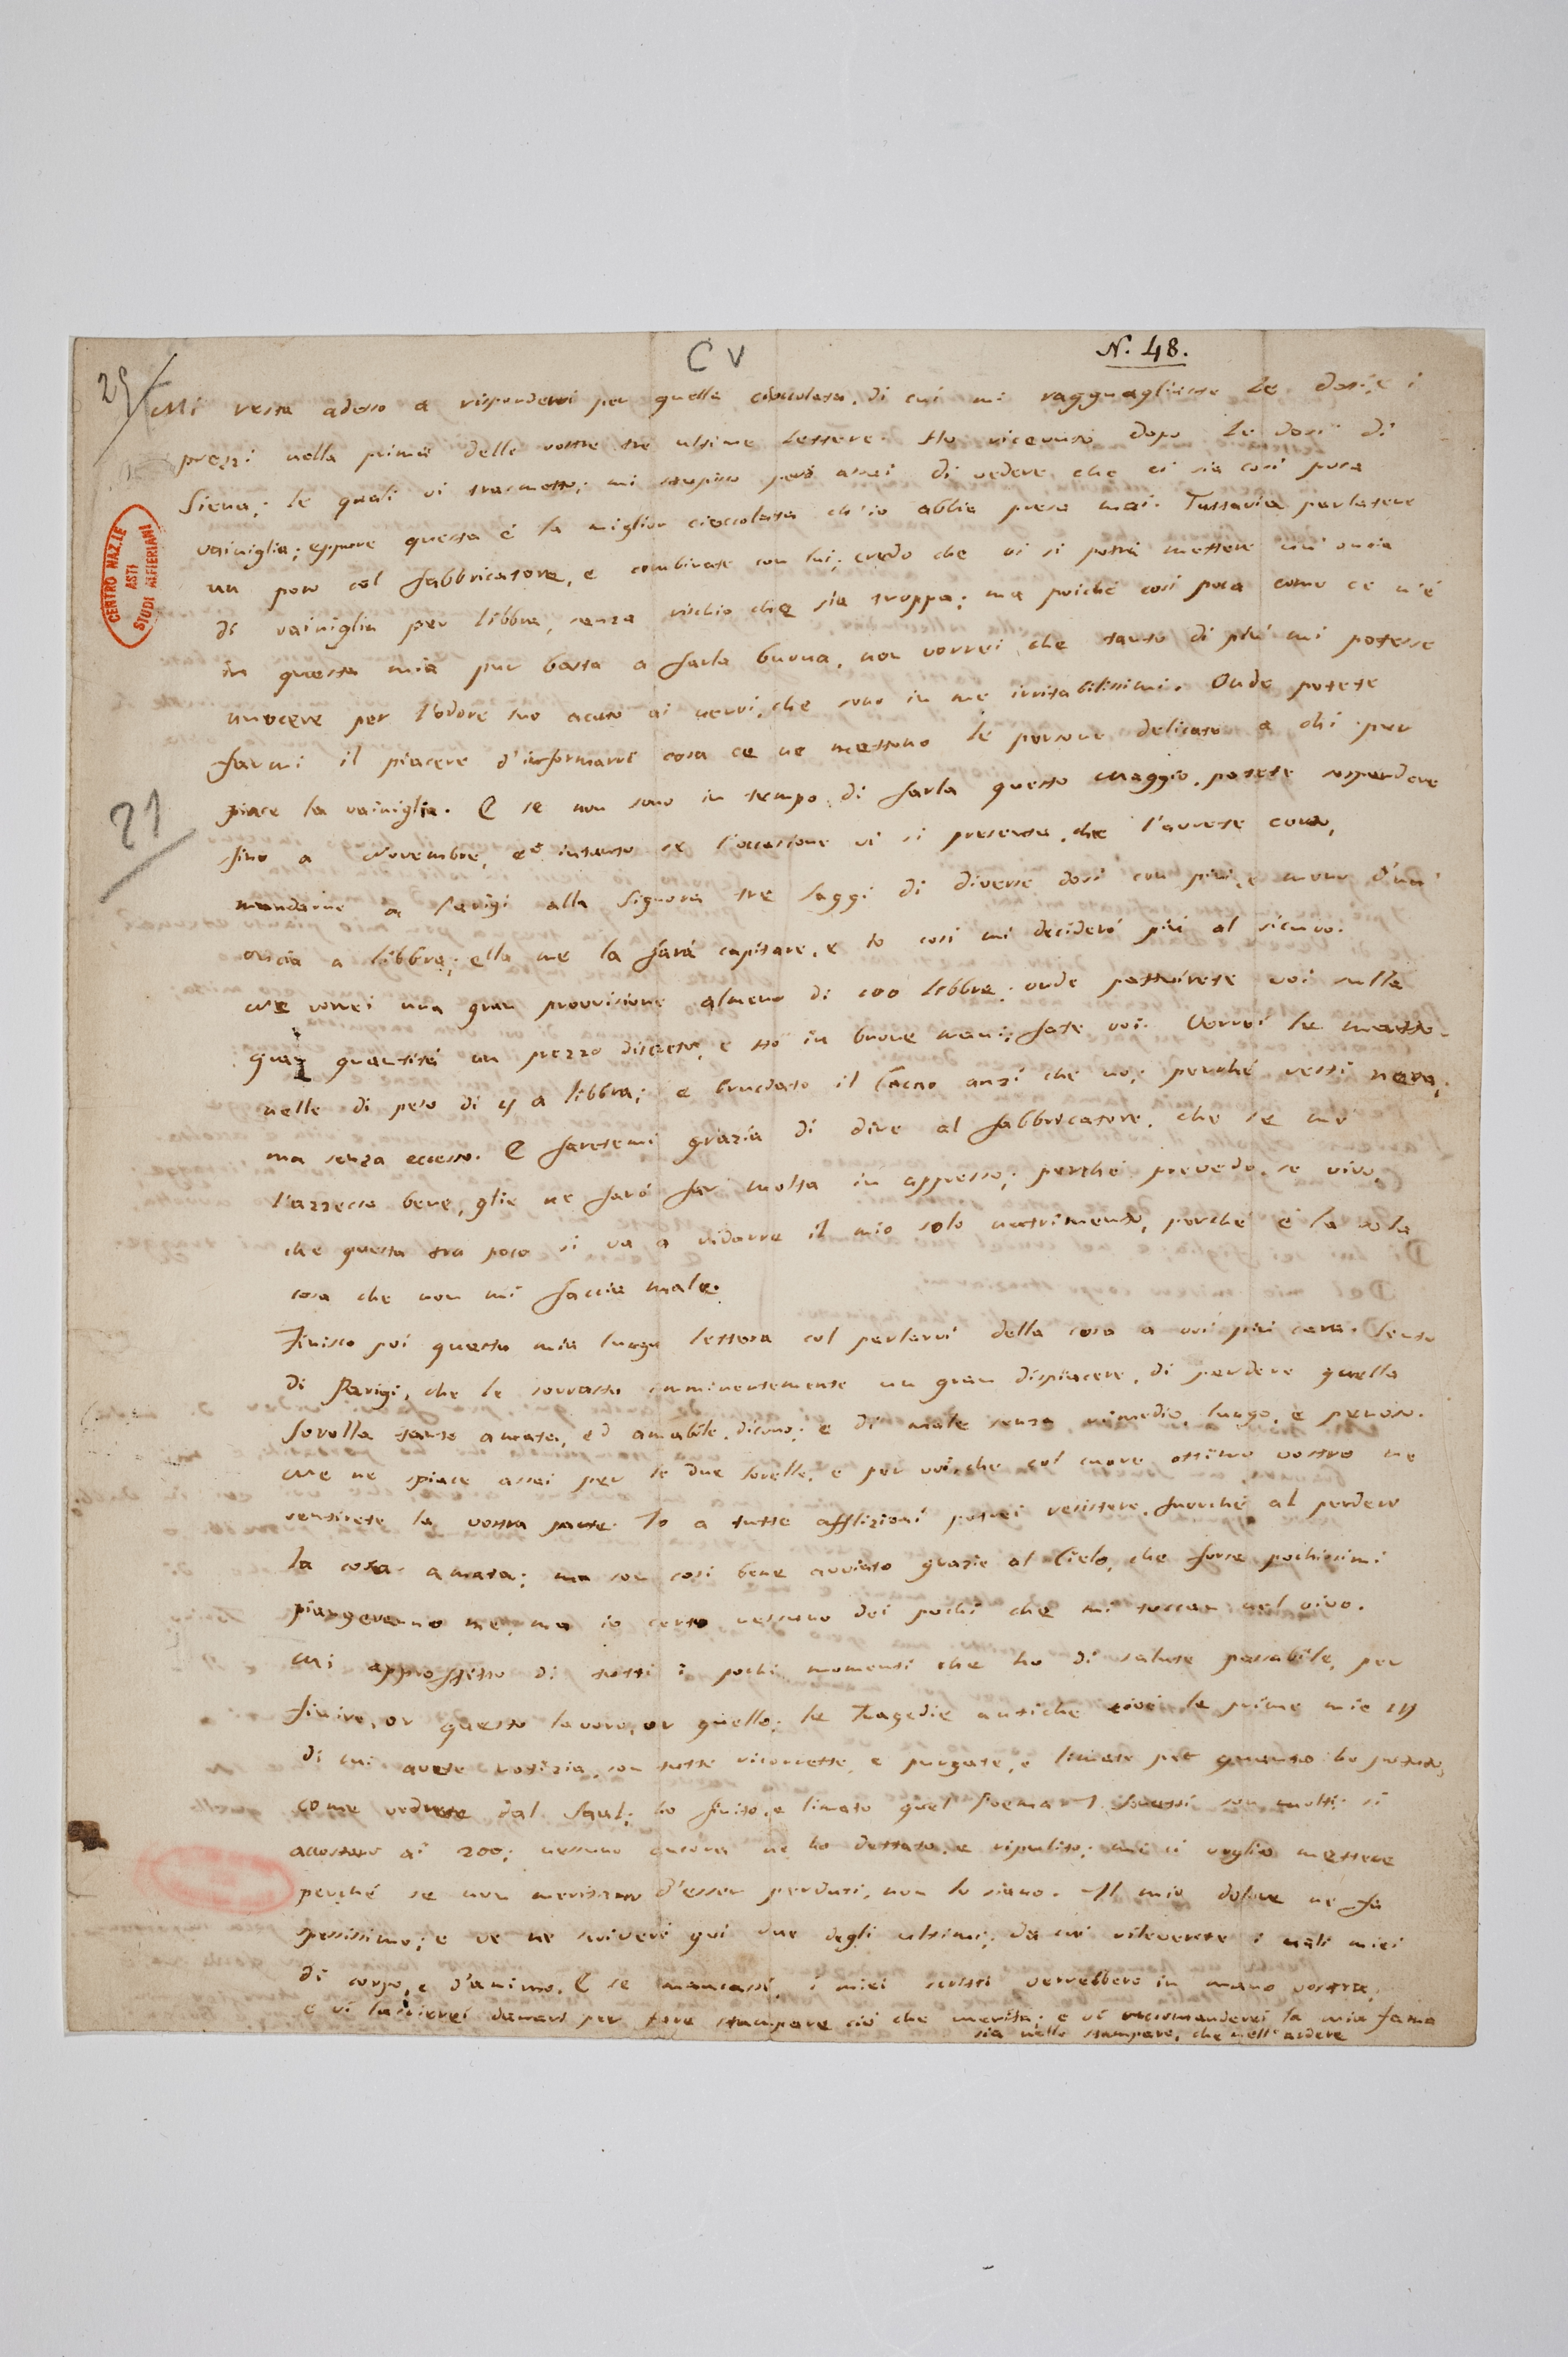 C V
N. 48.
25
Mi resta adesso a rispondervi per quella cioccolata, di cui mi ragguagliaste le dosi, e i
prezzi nella prima delle vostre tre ultime lettere. Ho ricevuto dopo le dosi di
Siena; le quali vi trasmetto; mi stupisco però assai di vedere che ci sia così poca
vainiglia; eppure questa è la miglior cioccolata ch'io abbia presa mai. Tuttavia parlatene
un poco col fabbricatore, e combinate con lui; credo che vi si potrà mettere un'oncia
di vainiglia per libbra, senza rischio che sia troppa; ma poiché così poca come ce n'è
in questa mia pur basta a farla buona, non vorrei che tanto di più mi potesse
nuocere per l'odore suo acuto ai nervi, che sono in me irritabilissimi. Onde potete
farmi il piacere d'informarvi cosa ce ne mettono le persone delicate a chi pur
piace la vainiglia. E se non sono in tempo di farla questo Maggio, potete sospendere
fino a Novembre, ed intanto se l'occasione vi si presenta, che l'avrete certo,
mandarne a Parigi alla Signora tre saggi di diverse dosi con più, e meno d'un'
oncia a libbra; ella me la farà capitare, e io così mi deciderò più al sicuro.
Me vorrei una gran provvisione almeno di 100 libbre; onde pattuirete voi sulla
gran quantità un prezzo discreto, e sto in buone mani; fate voi. Vorrei le matto-
nelle di peso di 4 a libbra; e bruciato il Cacao anzi che no; perché resti nera,
ma senza eccesso. E faretemi grazia di dire al fabbricatore, che se me
l'azzecca bene, glie ne farò far molta in appresso; perché prevedo, se vivo,
che questa tra poco si va a ridurre il mio solo nutrimento, perché è la sola
cosa che non mi faccia male.
Finisco poi questa mia lunga lettera col parlarvi della cosa a voi più cara. Sento
di Parigi, che le sovrasta imminentemente un gran dispiacere, di perdere quella
Sorella tanto amata, ed amabile, dicono; e di male senza rimedio, lungo, e penoso.
Me ne spiace assai per le due sorelle, e per voi, che col cuore ottimo vostro ne
sentirete la vostra parte. Io a tutte afflizioni potrei resistere, fuorché al perdere
la cosa amata; ma son così bene avviato grazie al Cielo, che forse pochissimi
piangeranno me, ma io certo nessuno dei pochi che mi toccan nel vivo.
Mi approfitto di tutti i pochi momenti che ho di salute passabile, per
finire, or questo lavoro, or quello; le Tragedie antiche cioè le prime mie 14
di cui avete notizia, son tutte ricorrette, e purgate, e limate per quanto ho potuto,
come vedrete dal Saul; ho finito, e limato quel Poema. I Sonetti son molti; si
accostano ai 200; nessuno ancora ne ho dettato, e ripulito; mi ci voglio mettere
perché se non meritano d'esser perduti, non lo siano. Il mio dolore ne fa
spessissimo; e ve ne scriverò qui due degli ultimi, da cui rileverete i mali miei
di corpo, e d'animo. E se mancassi, i miei scritti verrebbero in mano vostra;
e vi lascierei denari per fare stampare ciò che merita; e vi raccomanderei la mia fama
sia nello stampare, che nell'ardere
CENTRO NAZ.LE
ASTI
STUDI ALFIERIANI
21